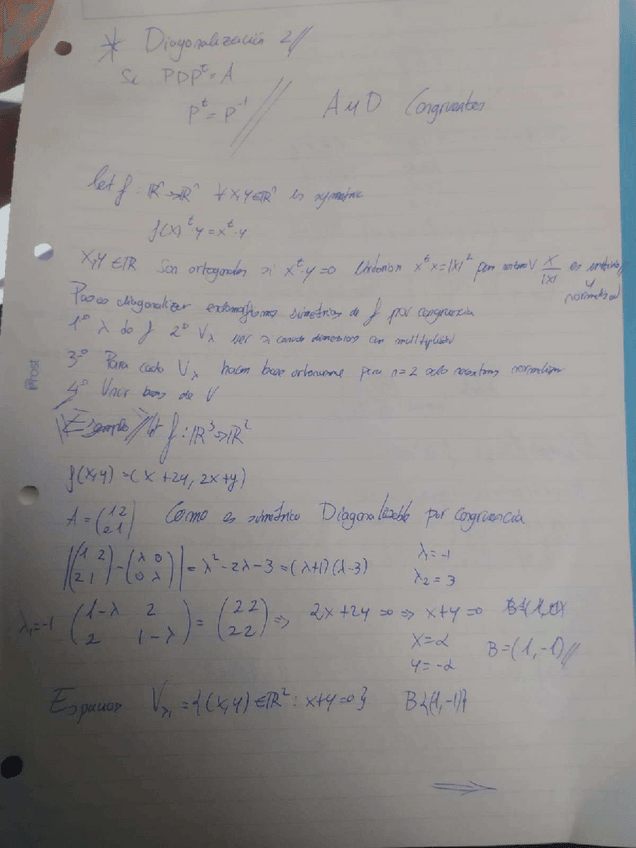 * Diagonalización 2//
Si PDPᵗ = A
Pᵗ = P⁻¹ // A y D Congruentes
let f: ℝⁿ→ℝⁿ ∀ x,y∈ℝⁿ es symetric
f(x)ᵗ·y = xᵗ·y
X,y ∈ℝ Son ortogonales si xᵗ·y=0 xᵗx=|x|² para x/|x| es
y
Pasos diagonalizar endomorfismos simétricos de f por congruencia
1º λ de f 2º V_λ ver si dimension con multiplicidad
3º Para cada V_λ hacer base ortonorme para n=2 solo normalizar
4º Unir bases de V
Ejemplo // let f: ℝ³→ℝ²
f(x,y)=(x+2y, 2x+y)
A = (1 2 / 2 1) Como es simétrica Diagonalizable por congruencia
|(1 2 / 2 1) - (λ 0 / 0 λ)| = λ²-2λ-3 = (λ+1)(λ-3) λ=-1
λ₂=3
λ₁=-1 (1-λ 2 / 2 1-λ) = (2 2 / 2 2) ⇒ 2x+2y=0 ⇒ x+y=0
x=α
y=-α B=(1,-1)//
Espacios V_λ₁ = {(x,y)∈ℝ²: x+y=0} B{(1,-1)}
⇒
Prost